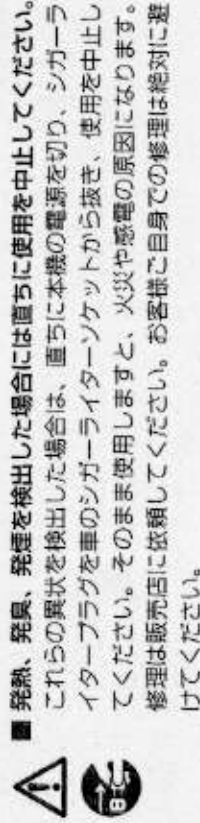 ■ 発熱、発臭、発煙を検出した場合には直ちに使用を中止してください。
これらの異状を検出した場合は、直ちに本機の電源を切り、シガーラ
イタープラグを車のシガーライターソケットから抜き、使用を中止し
てください。そのまま使用しますと、火災や感電の原因になります。
修理は販売店に依頼してください。お客様ご自身での修理は絶対に避
けてください。